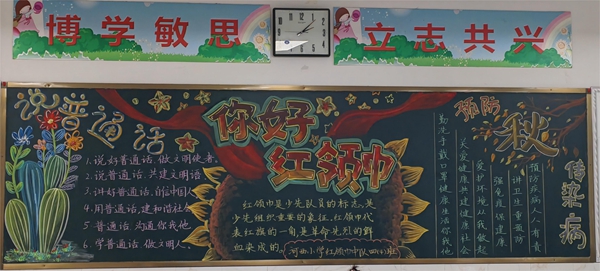 博学敏思
立志共兴
说普通话
1.说好普通话,做文明使者。
2.说普通话,共建文明语
3.讲好普通话,
4.用普通话,建和谐社会
5.普通话,沟通你我他
6.学普通话,做文明人。
你好
红领巾
红领巾是少先队员的标志,是
少先组织重要的象征,红领巾代
表红旗的一角,是革命先烈的鲜
血染成的。
河西小学红领巾中队
预防
秋
传染病
勤洗手戴口罩健康生活你我他
关爱健康共建健康社会
爱护环境从我做起
强免疫保健康
讲卫生重预防
预防疾病人人有责